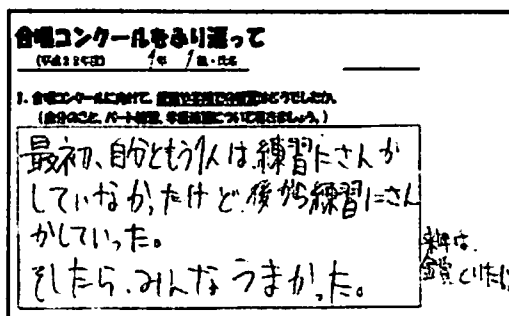 合唱コンクールをふり返って
(平成22年度) 1年 1組・氏名
1. 合唱コンクールに向けて、
(自分のこと、パート練習、学級練習について書きましょう。)
最初、自分ともう1人は、練習にさんか
していなかったけど、後から練習にさん
かしていった。
そしたら、みんなうまかった。
来年は、
金賞とりたい